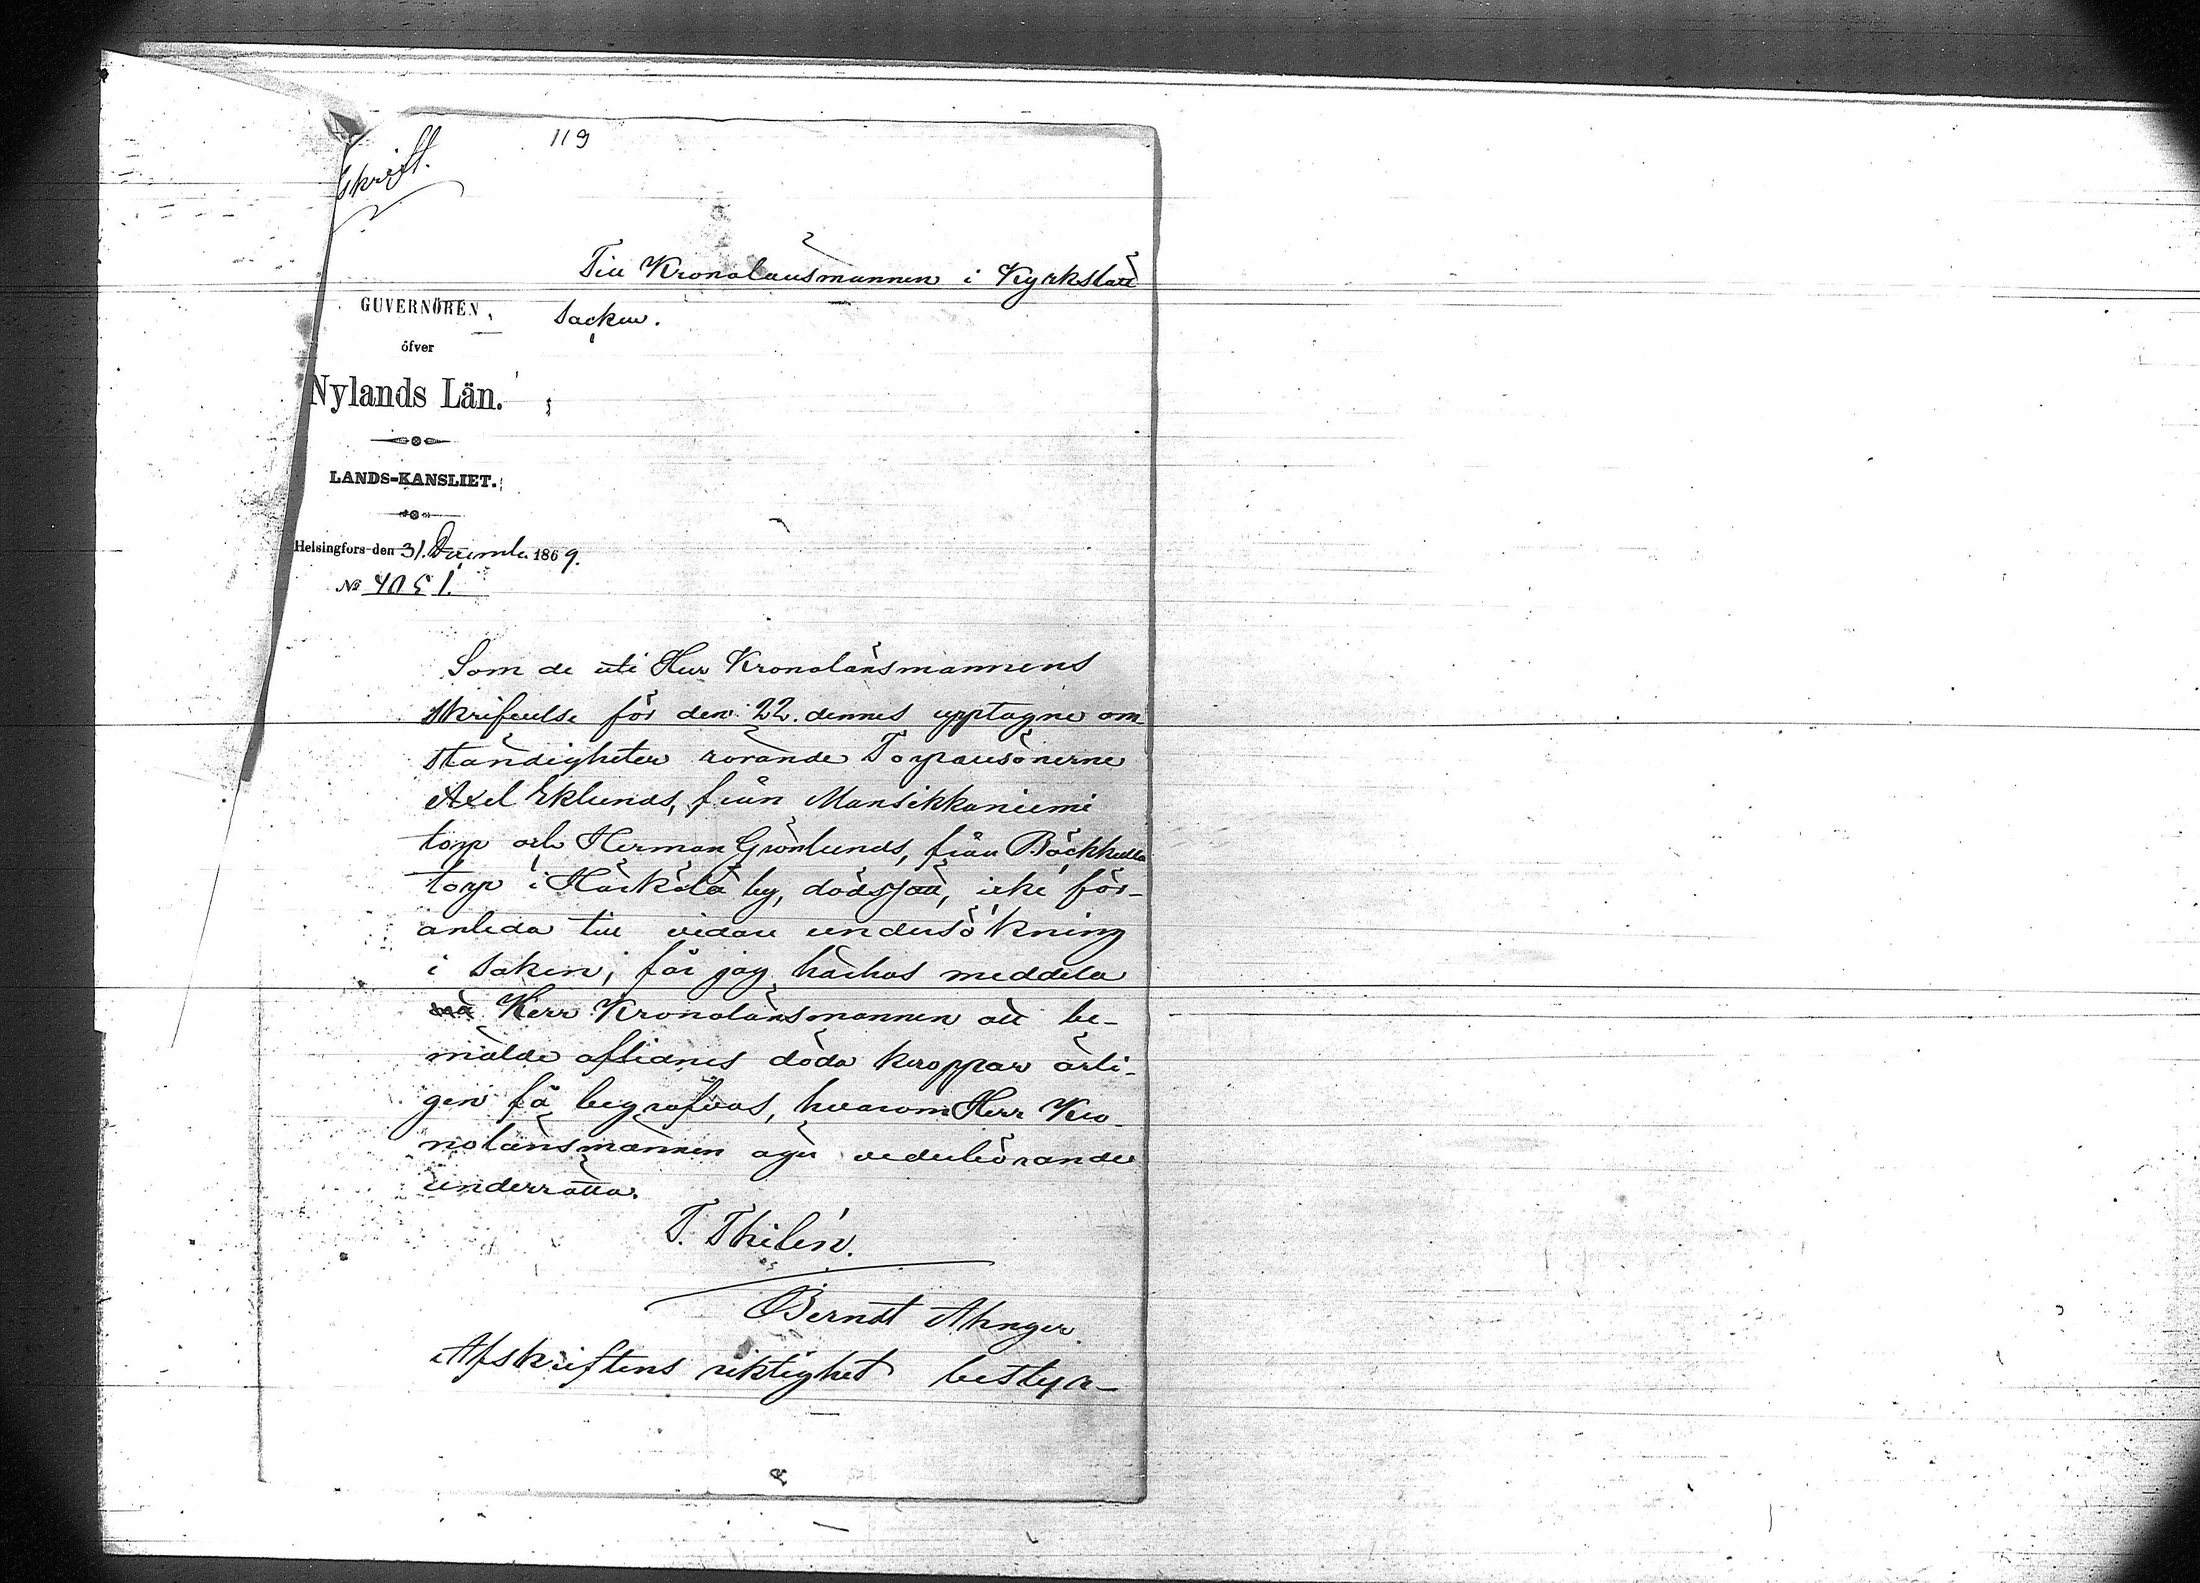 119
skrift.
Till Kronolänsmannen i Kyrkslätt
Socken.
GUVERNÖREN
öfver
Nylands Län.
LANDS-KANSLIET.
Helsingfors den 31. Decemb. 1869.
No 4051.
Som de uti Herr Kronolänsmannens
skrifvelse för den 22. dennes upptagne om-
ständigheter rörande Torparesönerne
Axel Eklunds, från Mansikkaniemi
torp och Herman Grönlunds, från Bäckkulla
torp i Härkälä by, dödssätt, icke för-
anleda till vidare undersökning
i saken; får jag härhos meddela
Herr Kronolänsmannen att be-
mälde aflidnes döda kroppar ärli-
gen få begrafvas, hvarom Herr Kro-
nolänsmannen äger vederbörande
underrätta.
T. Thilén.
Berndt Ahnger.
Afskriftens riktighet bestyr-